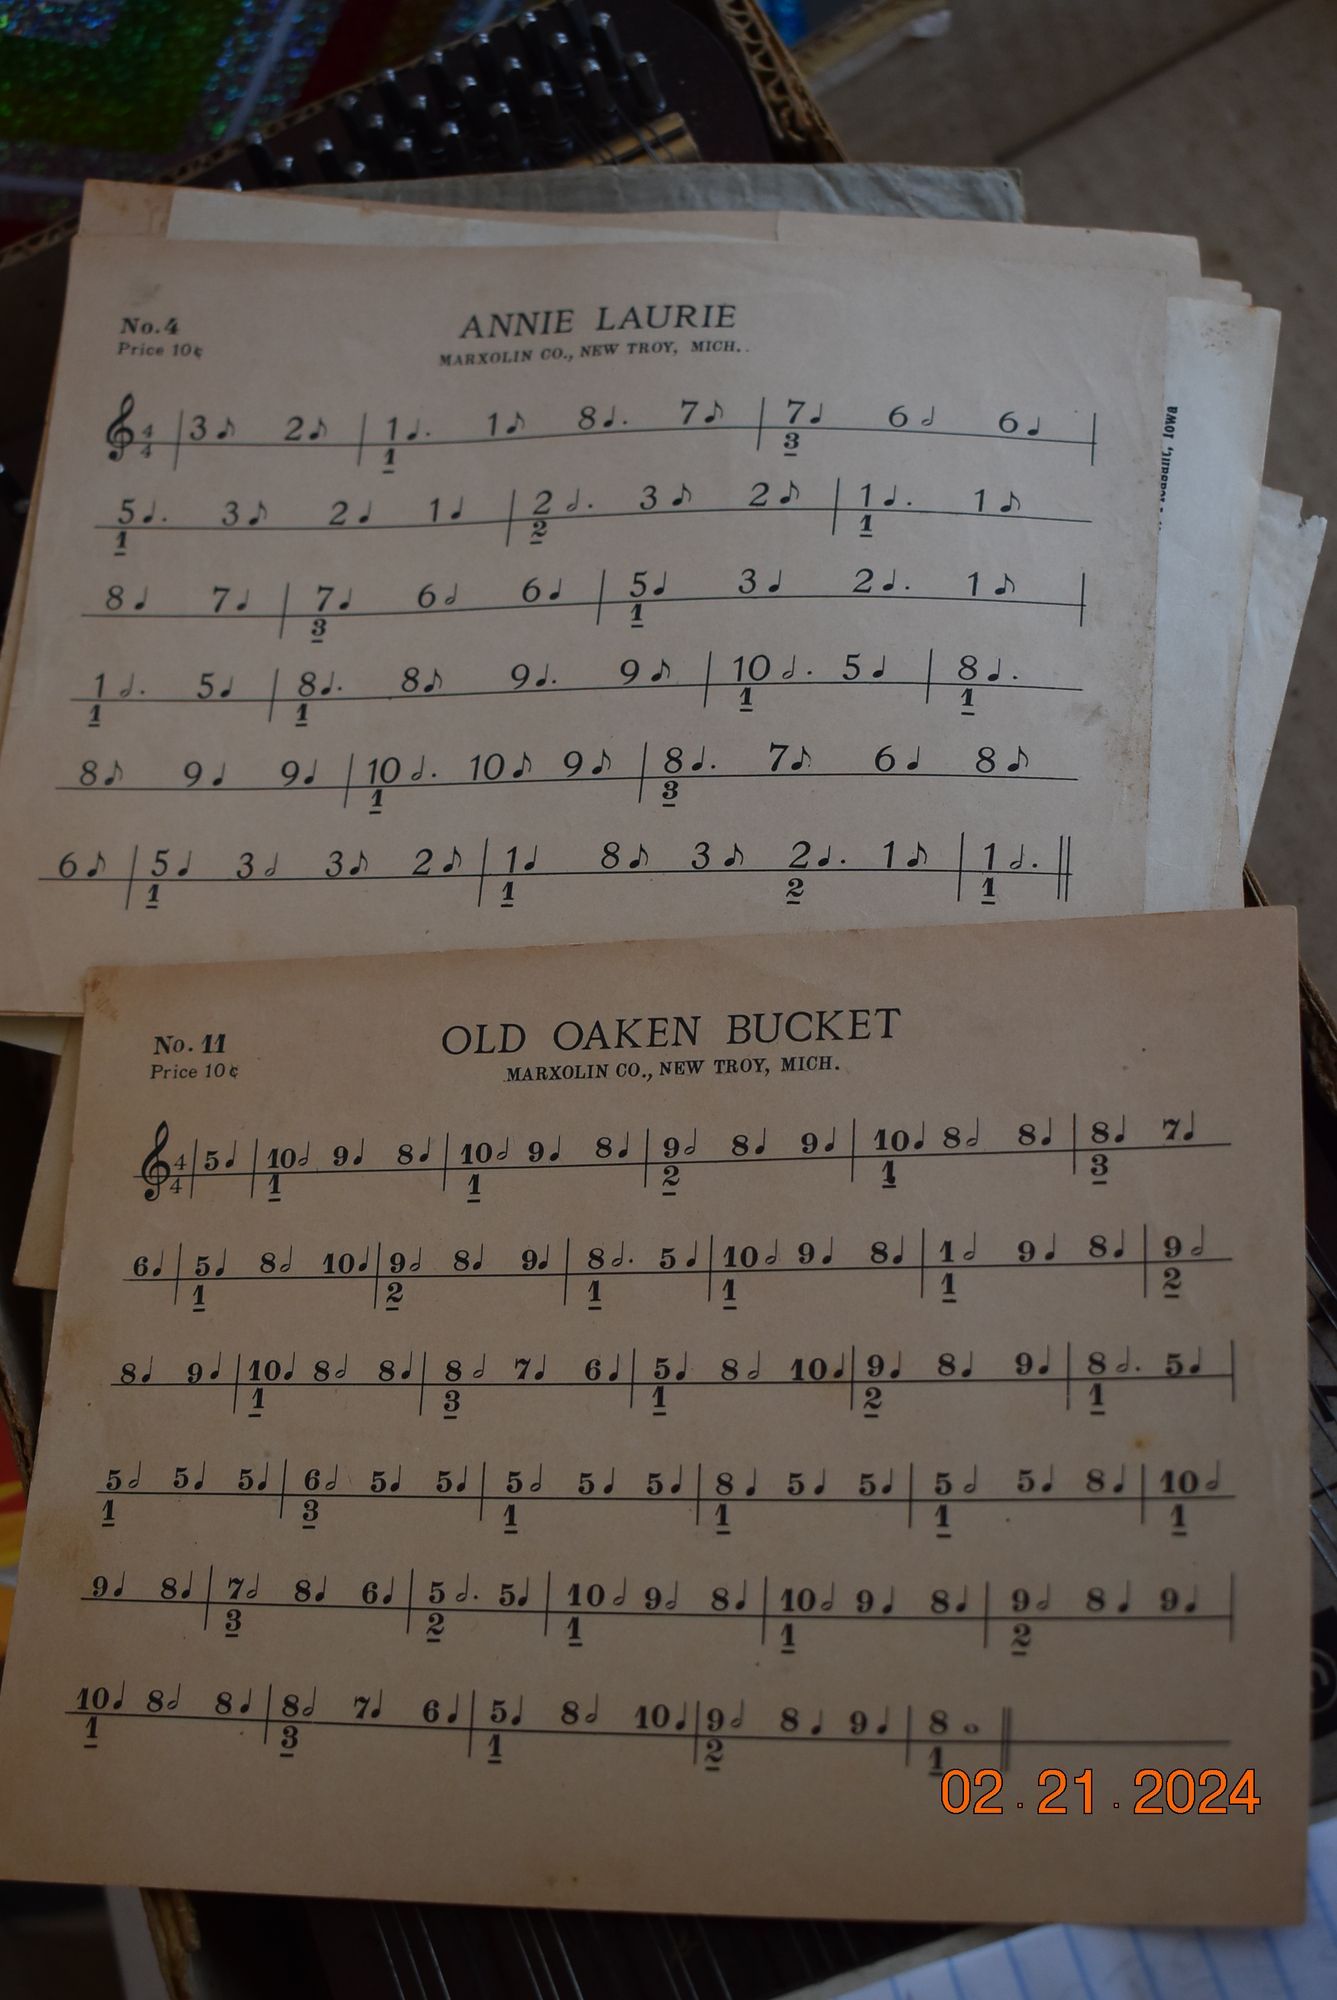 No. 4
Price 10¢
ANNIE LAURIE
MARXOLIN CO., NEW TROY, MICH.
4 4 3 ♪ 2 ♪ 1 ♩. 1 ♪ 8 ♩. 7 ♪ 7 ♩ 6 𝅗𝅥 6 ♩
1 3
5 ♩. 3 ♪ 2 ♩ 1 ♩ 2 𝅗𝅥. 3 ♪ 2 ♪ 1 ♩. 1 ♪
1 2 1
8 ♩ 7 ♩ 7 ♩ 6 𝅗𝅥 6 ♩ 5 ♩ 3 ♩ 2 ♩. 1 ♪
3 1
1 𝅗𝅥. 5 ♩ 8 ♩. 8 ♪ 9 ♩. 9 ♪ 10 𝅗𝅥. 5 ♩ 8 ♩.
1 1 1 1
8 ♪ 9 ♩ 9 ♩ 10 𝅗𝅥. 10 ♪ 9 ♪ 8 ♩. 7 ♪ 6 ♩ 8 ♪
1 3
6 ♪ 5 ♩ 3 𝅗𝅥 3 ♪ 2 ♪ 1 ♩ 8 ♪ 3 ♪ 2 ♩. 1 ♪ 1 𝅗𝅥.
1 1 2 1
IOWA
No. 11
Price 10¢
OLD OAKEN BUCKET
MARXOLIN CO., NEW TROY, MICH.
4 4 5 ♩ 10 𝅗𝅥 9 ♩ 8 ♩ 10 𝅗𝅥 9 ♩ 8 ♩ 9 𝅗𝅥 8 ♩ 9 ♩ 10 ♩ 8 𝅗𝅥 8 ♩ 8 ♩ 7 ♩
1 1 2 1 3
6 ♩ 5 ♩ 8 𝅗𝅥 10 ♩ 9 𝅗𝅥 8 ♩ 9 ♩ 8 𝅗𝅥. 5 ♩ 10 𝅗𝅥 9 ♩ 8 ♩ 1 𝅗𝅥 9 ♩ 8 ♩ 9 𝅗𝅥
1 2 1 1 1 2
8 ♩ 9 ♩ 10 ♩ 8 𝅗𝅥 8 ♩ 8 𝅗𝅥 7 ♩ 6 ♩ 5 ♩ 8 𝅗𝅥 10 ♩ 9 ♩ 8 ♩ 9 ♩ 8 𝅗𝅥. 5 ♩
1 3 1 2 1
5 𝅗𝅥 5 ♩ 5 ♩ 6 𝅗𝅥 5 ♩ 5 ♩ 5 𝅗𝅥 5 ♩ 5 ♩ 8 ♩ 5 ♩ 5 ♩ 5 𝅗𝅥 5 ♩ 8 ♩ 10 𝅗𝅥
1 3 1 1 1 1
9 ♩ 8 ♩ 7 𝅗𝅥 8 ♩ 6 ♩ 5 𝅗𝅥. 5 ♩ 10 𝅗𝅥 9 𝅗𝅥 8 ♩ 10 𝅗𝅥 9 ♩ 8 ♩ 9 𝅗𝅥 8 ♩ 9 ♩
3 2 1 1 2
10 ♩ 8 𝅗𝅥 8 ♩ 8 𝅗𝅥 7 ♩ 6 ♩ 5 ♩ 8 𝅗𝅥 10 ♩ 9 𝅗𝅥 8 ♩ 9 ♩ 8 𝅝
1 3 1 2 1
02.21.2024